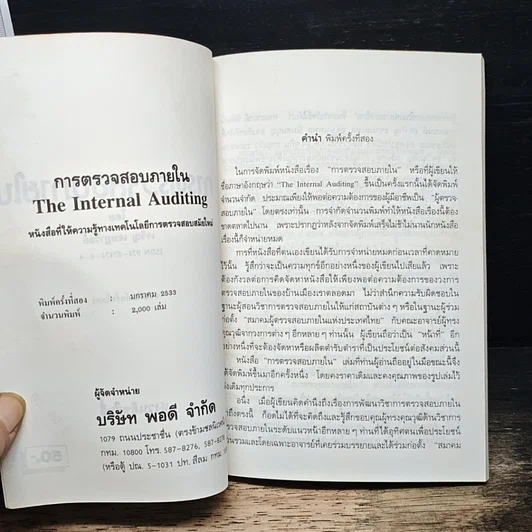 การตรวจสอบภายใน
The Internal Auditing
หนังสือที่ให้ความรู้ทางเทคโนโลยีการตรวจสอบสมัยใหม่
พิมพ์ครั้งที่สอง : มกราคม 2533
จำนวนพิมพ์ : 2,000 เล่ม
ผู้จัดจำหน่าย
บริษัท พอดี จำกัด
1079 ถนนประชาชื่น (ตรงข้ามชลนิเวศน์)
กทม. 10800 โทร. 587-8276, 587-82
(หรือตู้ ปณ. 5-1031 ปท. สีลม กทม.
คำนำ พิมพ์ครั้งที่สอง
ในการจัดพิมพ์หนังสือเรื่อง "การตรวจสอบภายใน" หรือที่ผู้เขียนให้
ชื่อภาษาอังกฤษว่า "The Internal Auditing" ขึ้นเป็นครั้งแรกนั้นได้จัดพิมพ์
จำนวนจำกัด ประมาณเพียงให้พอต่อความต้องการของผู้มีอาชีพเป็น "ผู้ตรวจ
สอบภายใน" โดยตรงเท่านั้น การจำกัดจำนวนพิมพ์ทำให้หนังสือเรื่องนี้ต้อง
ขาดตลาดไปนาน เพราะปรากฏว่าหลังจากจัดพิมพ์เสร็จไม่ช้าไม่นานนักหนังสือ
เรื่องนี้ก็จำหน่ายหมด
การที่หนังสือที่ตนเองเขียนได้รับการจำหน่ายหมดก่อนเวลาที่คาดหมาย
ไว้นั้น รู้สึกว่าจะเป็นความทุกข์อีกอย่างหนึ่งของผู้เขียนไปเสียแล้ว เพราะ
ต้องกังวลต่อการคิดจัดหาหนังสือให้เพียงพอต่อความต้องการของวงการ
ตรวจสอบภายในของบ้านเมืองเราตลอดมา ไม่ว่าสำนึกความรับผิดชอบใน
ฐานะผู้สอนวิชาการตรวจสอบภายในให้แก่สถาบันต่าง ๆ หรือในฐานะผู้ร่วม
ก่อตั้ง "สมาคมผู้ตรวจสอบภายในแห่งประเทศไทย" กับคณะอาจารย์ผู้ทรง
คุณวุฒิจากวงการต่าง ๆ อีกหลาย ๆ ท่านนั้น ผู้เขียนถือว่าเป็น "หน้าที่" อีก
อย่างหนึ่งที่จะต้องจัดหาหรือผลิตตำรับตำราที่เป็นประโยชน์ต่อสังคมส่วนนี้
หนังสือ "การตรวจสอบภายใน" เล่มที่ท่านผู้อ่านถืออยู่ในมือขณะนี้จึง
ได้จัดพิมพ์ขึ้นมาอีกครั้งหนึ่ง โดยคงราคาเดิมและคงคุณภาพของรูปเล่มไว้
ดังเดิมทุกประการ
อนึ่ง เมื่อผู้เขียนคิดคำนึงถึงเรื่องการพัฒนาวิชาการตรวจสอบภายใน
มาถึงตรงนี้ ก็อดไม่ได้ที่จะคิดถึงและรู้สึกขอบคุณผู้ทรงคุณวุฒิด้านวิชาการ
ตรวจสอบภายในระดับแนวหน้าอีกหลาย ๆ ท่านที่ได้อุทิศตนเพื่อประโยชน์
ส่วนรวมและโดยเฉพาะอาจารย์ที่เคยร่วมบรรยายและได้ร่วมก่อตั้ง "สมาคม